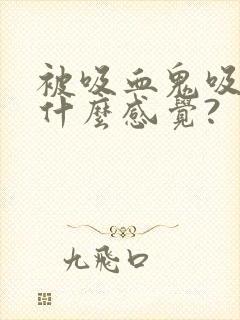 被吸血鬼吸
什麼感覺?
九飛口